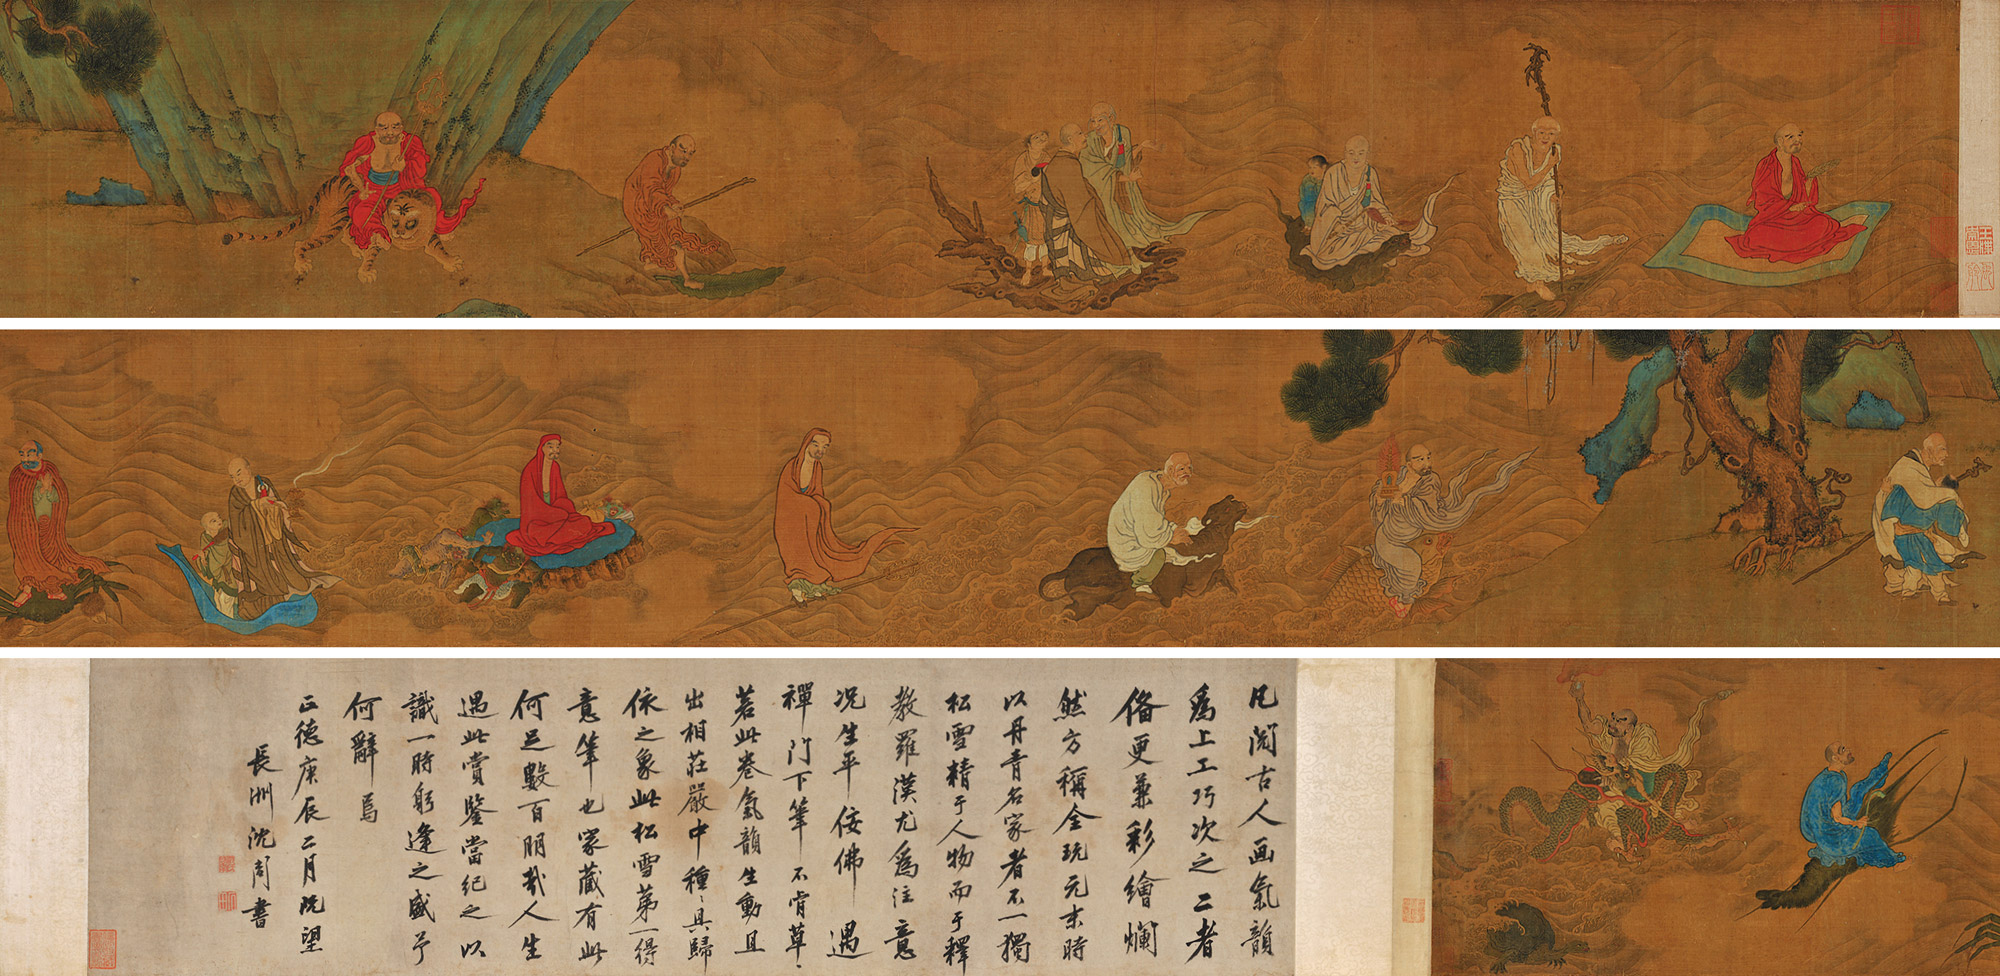 凡閲古人画氣韻
爲上工巧次之二者
俻更兼彩繪斕
然方稱全玩元末時
以丹青名家者不一獨
松雪精于人物而于釋
教羅漢尤爲注意
况生平佞佛遇
禪門下筆不肯草〻
若此卷氣韻生動且
出相莊嚴中種〻具歸
依之象此松雪苐一得
意筆也家藏有此
何足數百朋哉人生
遇此賞鑒當紀之以
識一時躬逢之盛予
何辭焉
正德庚辰二月既望
長洲沈周書